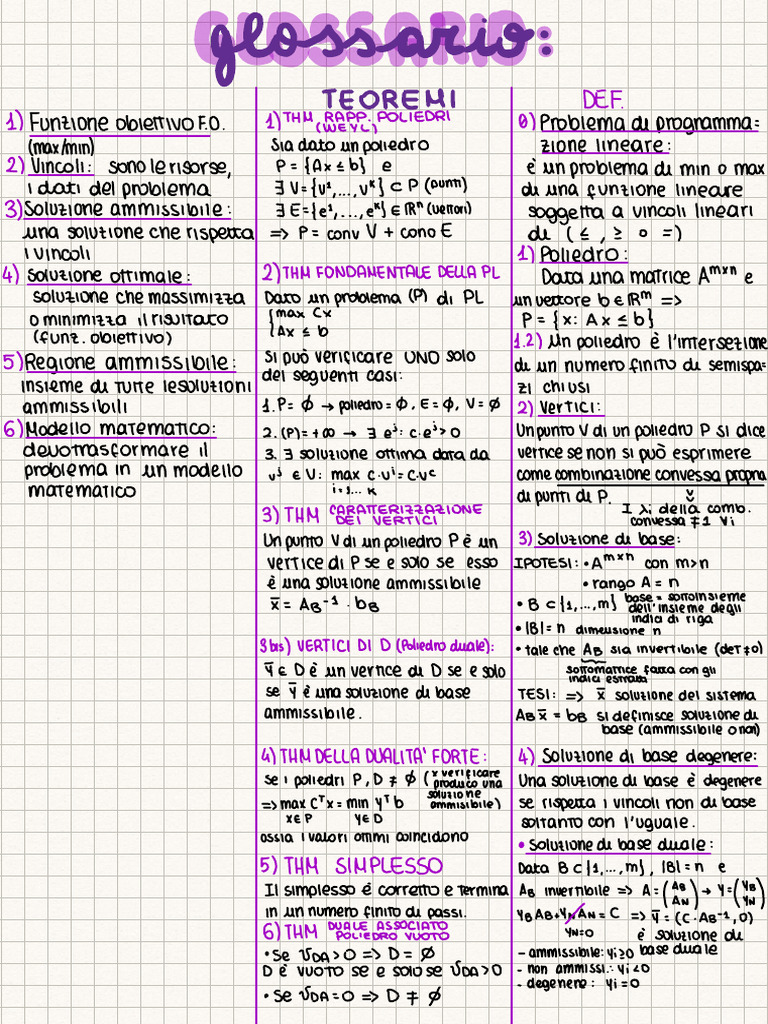 glossario:
1) Funzione obiettivo F.O.
(max/min)
2) Vincoli: sono le risorse,
i dati del problema
3) Soluzione ammissibile:
una soluzione che rispetta
i vincoli
4) Soluzione ottimale:
soluzione che massimizza
o minimizza il risultato
(funz. obiettivo)
5) Regione ammissibile:
insieme di tutte le soluzioni
ammissibili
6) Modello matematico:
devo trasformare il
problema in un modello
matematico
TEOREMI
1) THM RAPP. POLIEDRI
(WEYL)
Sia dato un poliedro
P = {Ax ≤ b} e
∃ V = {v¹,...,vᵏ} ⊂ P (punti)
∃ E = {e¹,...,eᵏ} ∈ ℝⁿ (vettori)
=> P = conv V + cono E
2) THM FONDAMENTALE DELLA PL
Dato un problema (P) di PL
{max Cx
{Ax ≤ b
Si può verificare UNO solo
dei seguenti casi:
1. P = ∅ → poliedro = ∅, E = ∅, V = ∅
2. (P) = +∞ → ∃ eʲ: c·eʲ > 0
3. ∃ soluzione ottima data da
vʲ ∈ V: max c·vⁱ = c·vᶜ
i=1... k
3) THM CARATTERIZZAZIONE
DEI VERTICI
Un punto V di un poliedro P è un
vertice di P se e solo se esso
è una soluzione ammissibile
x̄ = A_B⁻¹ · b_B
3 bis) VERTICI DI D (Poliedro duale):
Ȳ ∈ D è un vertice di D se e solo
se Ȳ è una soluzione di base
ammissibile.
4) THM DELLA DUALITA' FORTE:
se i poliedri P, D ≠ ∅ (x verificare
produco una
soluzione
ammisibile)
=> max Cᵀx = min yᵀb
x∈P y∈D
ossia i valori ottimi coincidono
5) THM SIMPLESSO
Il simplesso è corretto e termina
in un numero finito di passi.
6) THM DUALE ASSOCIATO
POLIEDRO VUOTO
• Se V_DA > 0 => D = ∅
D è vuoto se e solo se V_DA > 0
• Se V_DA = 0 => D ≠ ∅
DEF.
0) Problema di programma=
zione lineare:
è un problema di min o max
di una funzione lineare
soggetta a vincoli lineari
di (≤, ≥ o =)
1) Poliedro:
Data una matrice Aᵐˣⁿ e
un vettore b ∈ ℝᵐ =>
P = {x: Ax ≤ b}
1.2) Un poliedro è l'intersezione
di un numero finito di semispa=
zi chiusi
2) Vertici:
Un punto V di un poliedro P si dice
vertice se non si può esprimere
come combinazione convessa propria
di punti di P.
I λi della comb.
convessa ≠ 1 ∀i
3) Soluzione di base:
IPOTESI: • Aᵐˣⁿ con m>n
• rango A = n
• B ⊂ {1,...,m} base = sottoinsieme
dell'insieme degli
indici di riga
• |B| = n dimensione n
• tale che A_B sia invertibile (det ≠ 0)
sottomatrice fatta con gli
indici estratti
TESI: => x̄ soluzione del sistema
A_B x̄ = b_B si definisce soluzione di
base (ammissibile o non)
4) Soluzione di base degenere:
Una soluzione di base è degenere
se rispetta i vincoli non di base
soltanto con l'uguale.
• Soluzione di base duale:
Data B ⊂ {1,...,m}, |B| = n e
A_B invertibile => A = (A_B / A_N) → Y = (Y_B / Y_N)
Y_B A_B + Y_N A_N = C => Ȳ = (C·A_B⁻¹, 0)
Y_N = 0 è soluzione di
base duale
- ammissibile: yi ≥ 0
- non ammissi.: yi < 0
- degenere: yi = 0